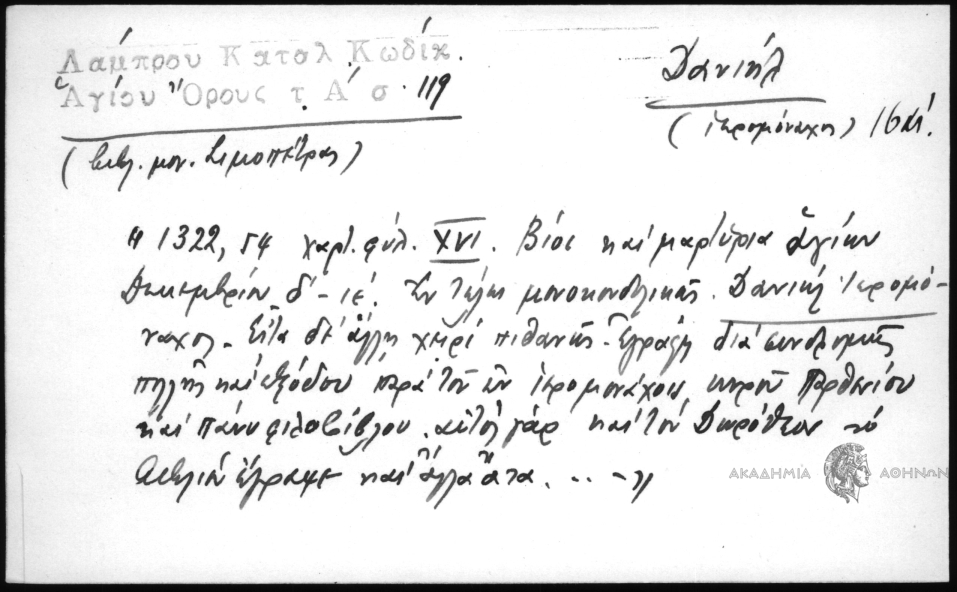 Λάμπρου Κατάλ. Κωδίκ.
Ἁγίου Ὄρους τ. Α΄ σ. 119
(Βιβλ. μον. Σιμοπέτρας)
Δανιήλ
(ἱερομόναχος) 16 αἰ.
"1322, 54 χαρτ. φύλ. XVI. Βίοι καὶ μαρτύρια ἁγίων
Δεκεμβρίου δ΄ - ιε΄. Ἐν τέλει μονοκονδυλικῶς. Δανιὴλ ἱερομό-
ναχος. Εἶτα δι' ἄλλη χειρὶ πιθανῶς. Ἐγράφη διὰ συνδρομῆς
πολλῆς καὶ ἐξόδου παρὰ τοῦ ἐν ἱερομονάχοις κυροῦ Παρθενίου
καὶ πάνυ φιλοβίβλου. αὐτὸς γὰρ καὶ τὸν Δωρόθεον τὸ
βιβλίον ἔγραψε καὶ ἄλλα ἄττα. .. - "
ΑΚΑΔΗΜΙΑ ΑΘΗΝΩΝ